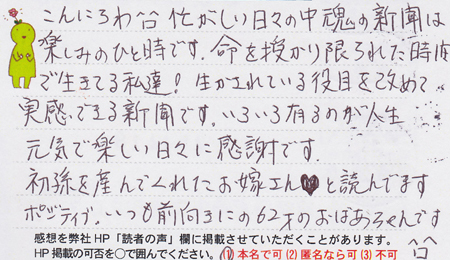 こんにちわ^^ 忙がしい日々の中魂の新聞は
楽しみのひと時です。命を授かり限られた時间
で生きてる私達！生かされている役目を改めて
実感できる新聞です。いろいろ有るのが人生
元気で楽しい日々に感謝です。
初孫を産んでくれたお嫁さん♥と読んでます
ポジティブ、いつも前向きにの62才のおばあちゃんです^^
感想を弊社HP「読者の声」欄に掲載させていただくことがあります。
HP掲載の可否を○で囲んでください。 (1)本名で可 (2)匿名なら可 (3)不可